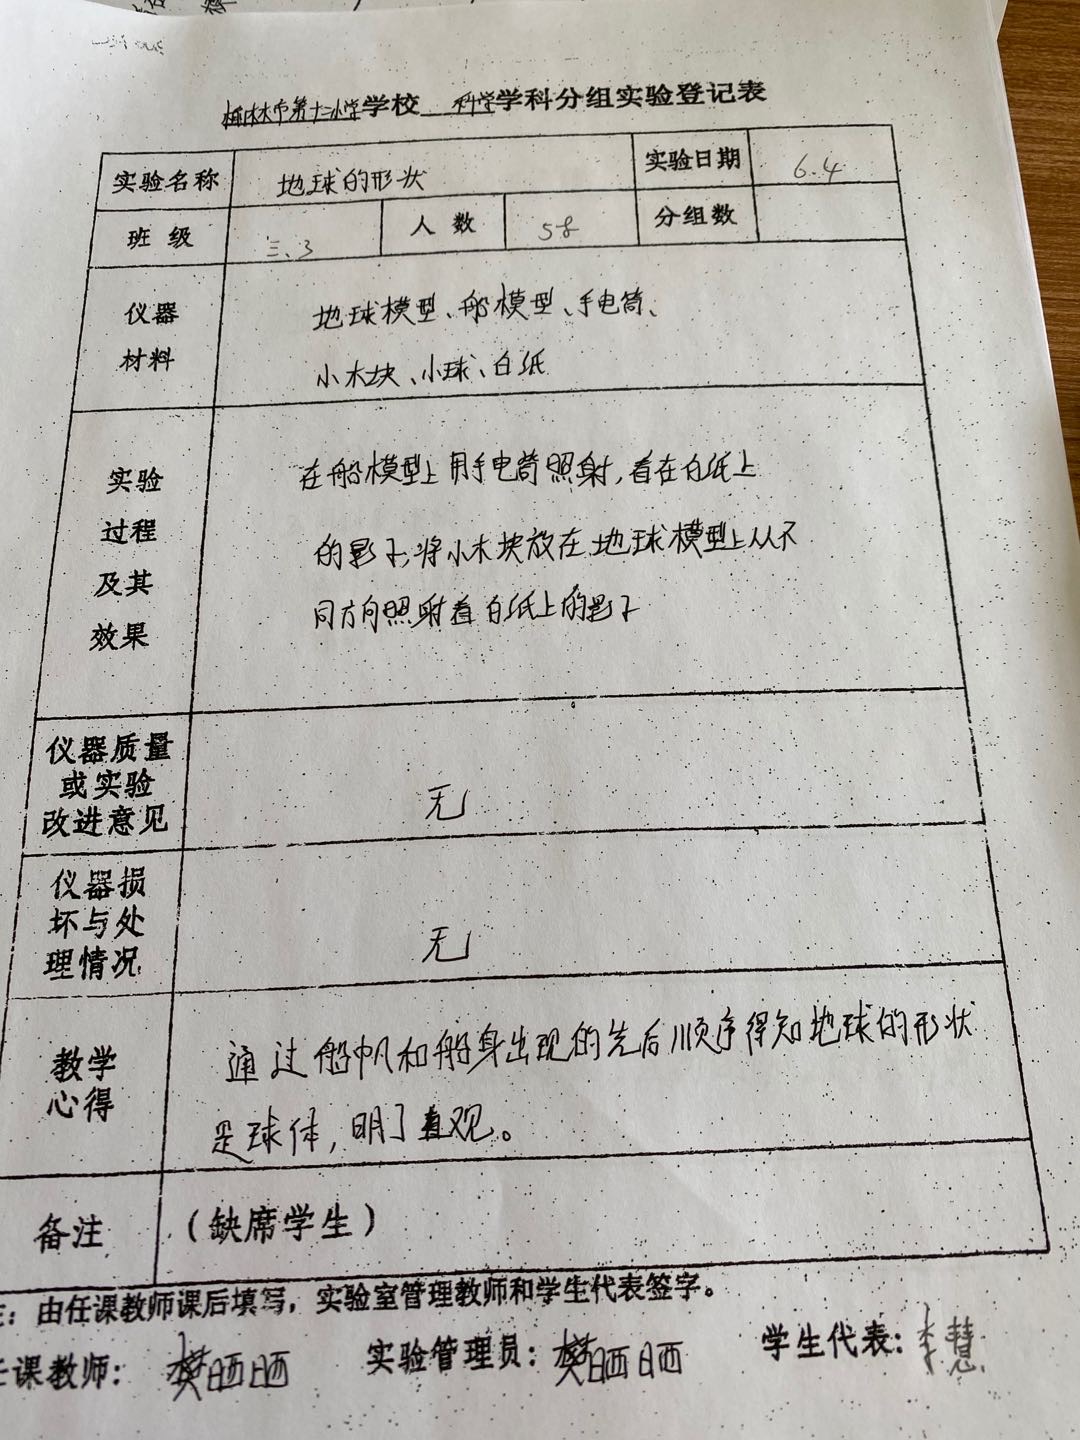 榆林市第十二小学学校 科学学科分组实验登记表
实验名称 地球的形状 实验日期 6.4
班级 三.3 人数 58 分组数
仪器材料 地球模型、船模型、手电筒、
小木块、小球、白纸
实验过程及其效果 在船模型上用手电筒照射,看在白纸上
的影子,将小木块放在地球模型上从不
同方向照射看白纸上的影子
仪器质量或实验改进意见 无
仪器损坏与处理情况 无
教学心得 通过船帆和船身出现的先后顺序得知地球的形状
是球体,明了直观。
备注 (缺席学生)
:由任课教师课后填写,实验室管理教师和学生代表签字。
任课教师: 樊晒晒 实验管理员: 樊晒晒 学生代表: 李慧